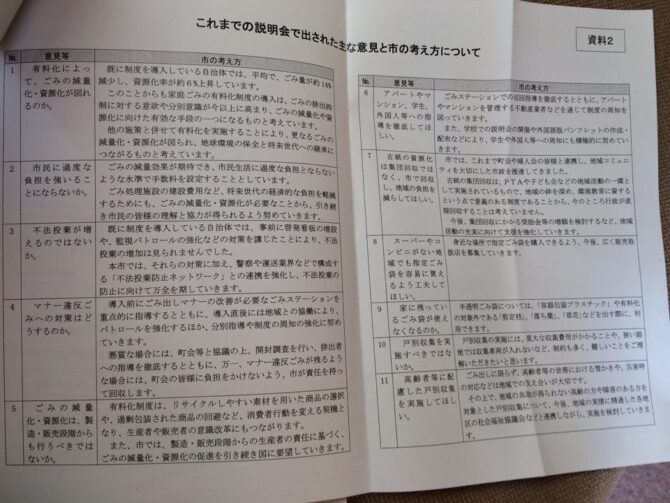 これまでの説明会で出された主な意見と市の考え方について
資料2
№
意見等
市の考え方
1
有料化によっ
て、ごみの減量
化・資源化が図れ
るのか。
既に制度を導入している自治体では、平均で、ごみ量が約14%
減少し、資源化率が約6%上昇しています。
このことからも家庭ごみの有料化制度の導入は、ごみの排出抑
制に対する意欲や分別意識が今以上に高まり、ごみの減量化や資
源化に向けた有効な手段の一つになるものと考えています。
他の施策と併せて有料化を実施することにより、更なるごみの
減量化・資源化が図られ、地球環境の保全と将来世代への継承に
つながるものと考えています。
2
市民に過度な
負担を強いるこ
とにならないか。
ごみの減量効果が期待でき、市民生活に過度な負担とならない
ような水準で手数料を設定することとしています。
ごみ処理施設の建設費用など、将来世代の経済的な負担を軽減
するためにも、ごみの減量化・資源化が必要なことから、引き続
き市民の皆様の理解と協力が得られるよう努めていきます。
3
不法投棄が増
えるのではない
か。
既に制度を導入している自治体では、事前に啓発看板の増設
や、監視パトロールの強化などの対策を講じたことにより、不法
投棄の増加は見られませんでした。
本市では、それらの対策に加え、警察や運送業界などで構成す
る「不法投棄防止ネットワーク」との連携を強化し、不法投棄の
防止に向けて万全を期していきます。
4
マナー違反ご
みへの対策はど
うするのか。
導入前にごみ出しマナーの改善が必要なごみステーションを
重点的に指導するとともに、導入直後には地域との協働により、
パトロールを強化するほか、分別指導や制度の周知の強化に努め
ていきます。
悪質な場合には、町会等と協議の上、開封調査を行い、排出者
への指導を徹底するとともに、万一、マナー違反ごみが残るよう
な場合には、町会の皆様に負担をかけないよう、市が責任を持っ
て回収します。
5
ごみの減量
化・資源化は、製
造・販売段階から
も行うべきでは
ないか。
有料化制度は、リサイクルしやすい素材を用いた商品の選択
や、過剰包装された商品の回避など、消費者行動を変える契機と
なり、生産者や販売者の意識改革にもつながります。
また、市では、製造・販売段階からの生産者の責任に基づく、
ごみの減量化・資源化の促進を引き続き国に要望していきます。
№
意見等
市の考え方
6
アパートやマ
ンション、学生、
外国人等への指
導を徹底してほ
しい。
ごみステーションでの巡回指導を徹底するとともに、アパート
やマンションを管理する不動産業者などを通じて制度の周知を図
っていきます。
また、学校での説明会の開催や外国語版パンフレットの作成・
配布などにより、学生や外国人等への周知にも積極的に努めてい
きます。
7
古紙の資源化
は集団回収では
なく、市で回収
し、地域の負担を
減らしてほしい。
市では、これまで町会や婦人会の皆様と連携し、地域コミュニテ
ィを大切にした市政を推進してきました。
古紙の集団回収は、PTAや子ども会などの地域活動の一環と
して実施されているもので、地域の絆を深め、環境教育に資する
という点で意義のある制度であることから、今のところ行政が直
接回収することは考えていません。
今後、集団回収にかかる奨励金等の増額を検討するなど、地域
活動の充実に向けて支援を強化していきます。
8
スーパーやコ
ンビニがない地
域でも指定ごみ
袋を容易に買え
るよう工夫して
ほしい。
身近な場所で指定ごみ袋を購入できるよう、今後、広く販売取
扱店を募集していきます。
9
家に残ってい
るごみ袋が使え
なくなるのか。
半透明ごみ袋については、「容器包装プラスチック」や有料化
の対象外である「剪定枝」、「落ち葉」、「草花」などを出す際に、利
用できます。
10
戸別収集を実
施すべきではな
いか。
戸別収集の実施には、莫大な収集費用がかかることや、狭い路
地では収集車両が入れないなど、制約も多く、難しいことをご理
解いただきたいと思います。
11
高齢者等に配
慮した戸別収集
を実施してほし
い。
ごみ出しに限らず、高齢者等の世帯における雪かきや、災害時
の対応などは地域での支え合いが大切です。
その上で、地域の共助が得られない高齢の方や障害のある方を
対象とした戸別収集について、今後、地域の実情に精通した各地
区の社会福祉協議会などと連携しながら、実施を検討していきま
す。